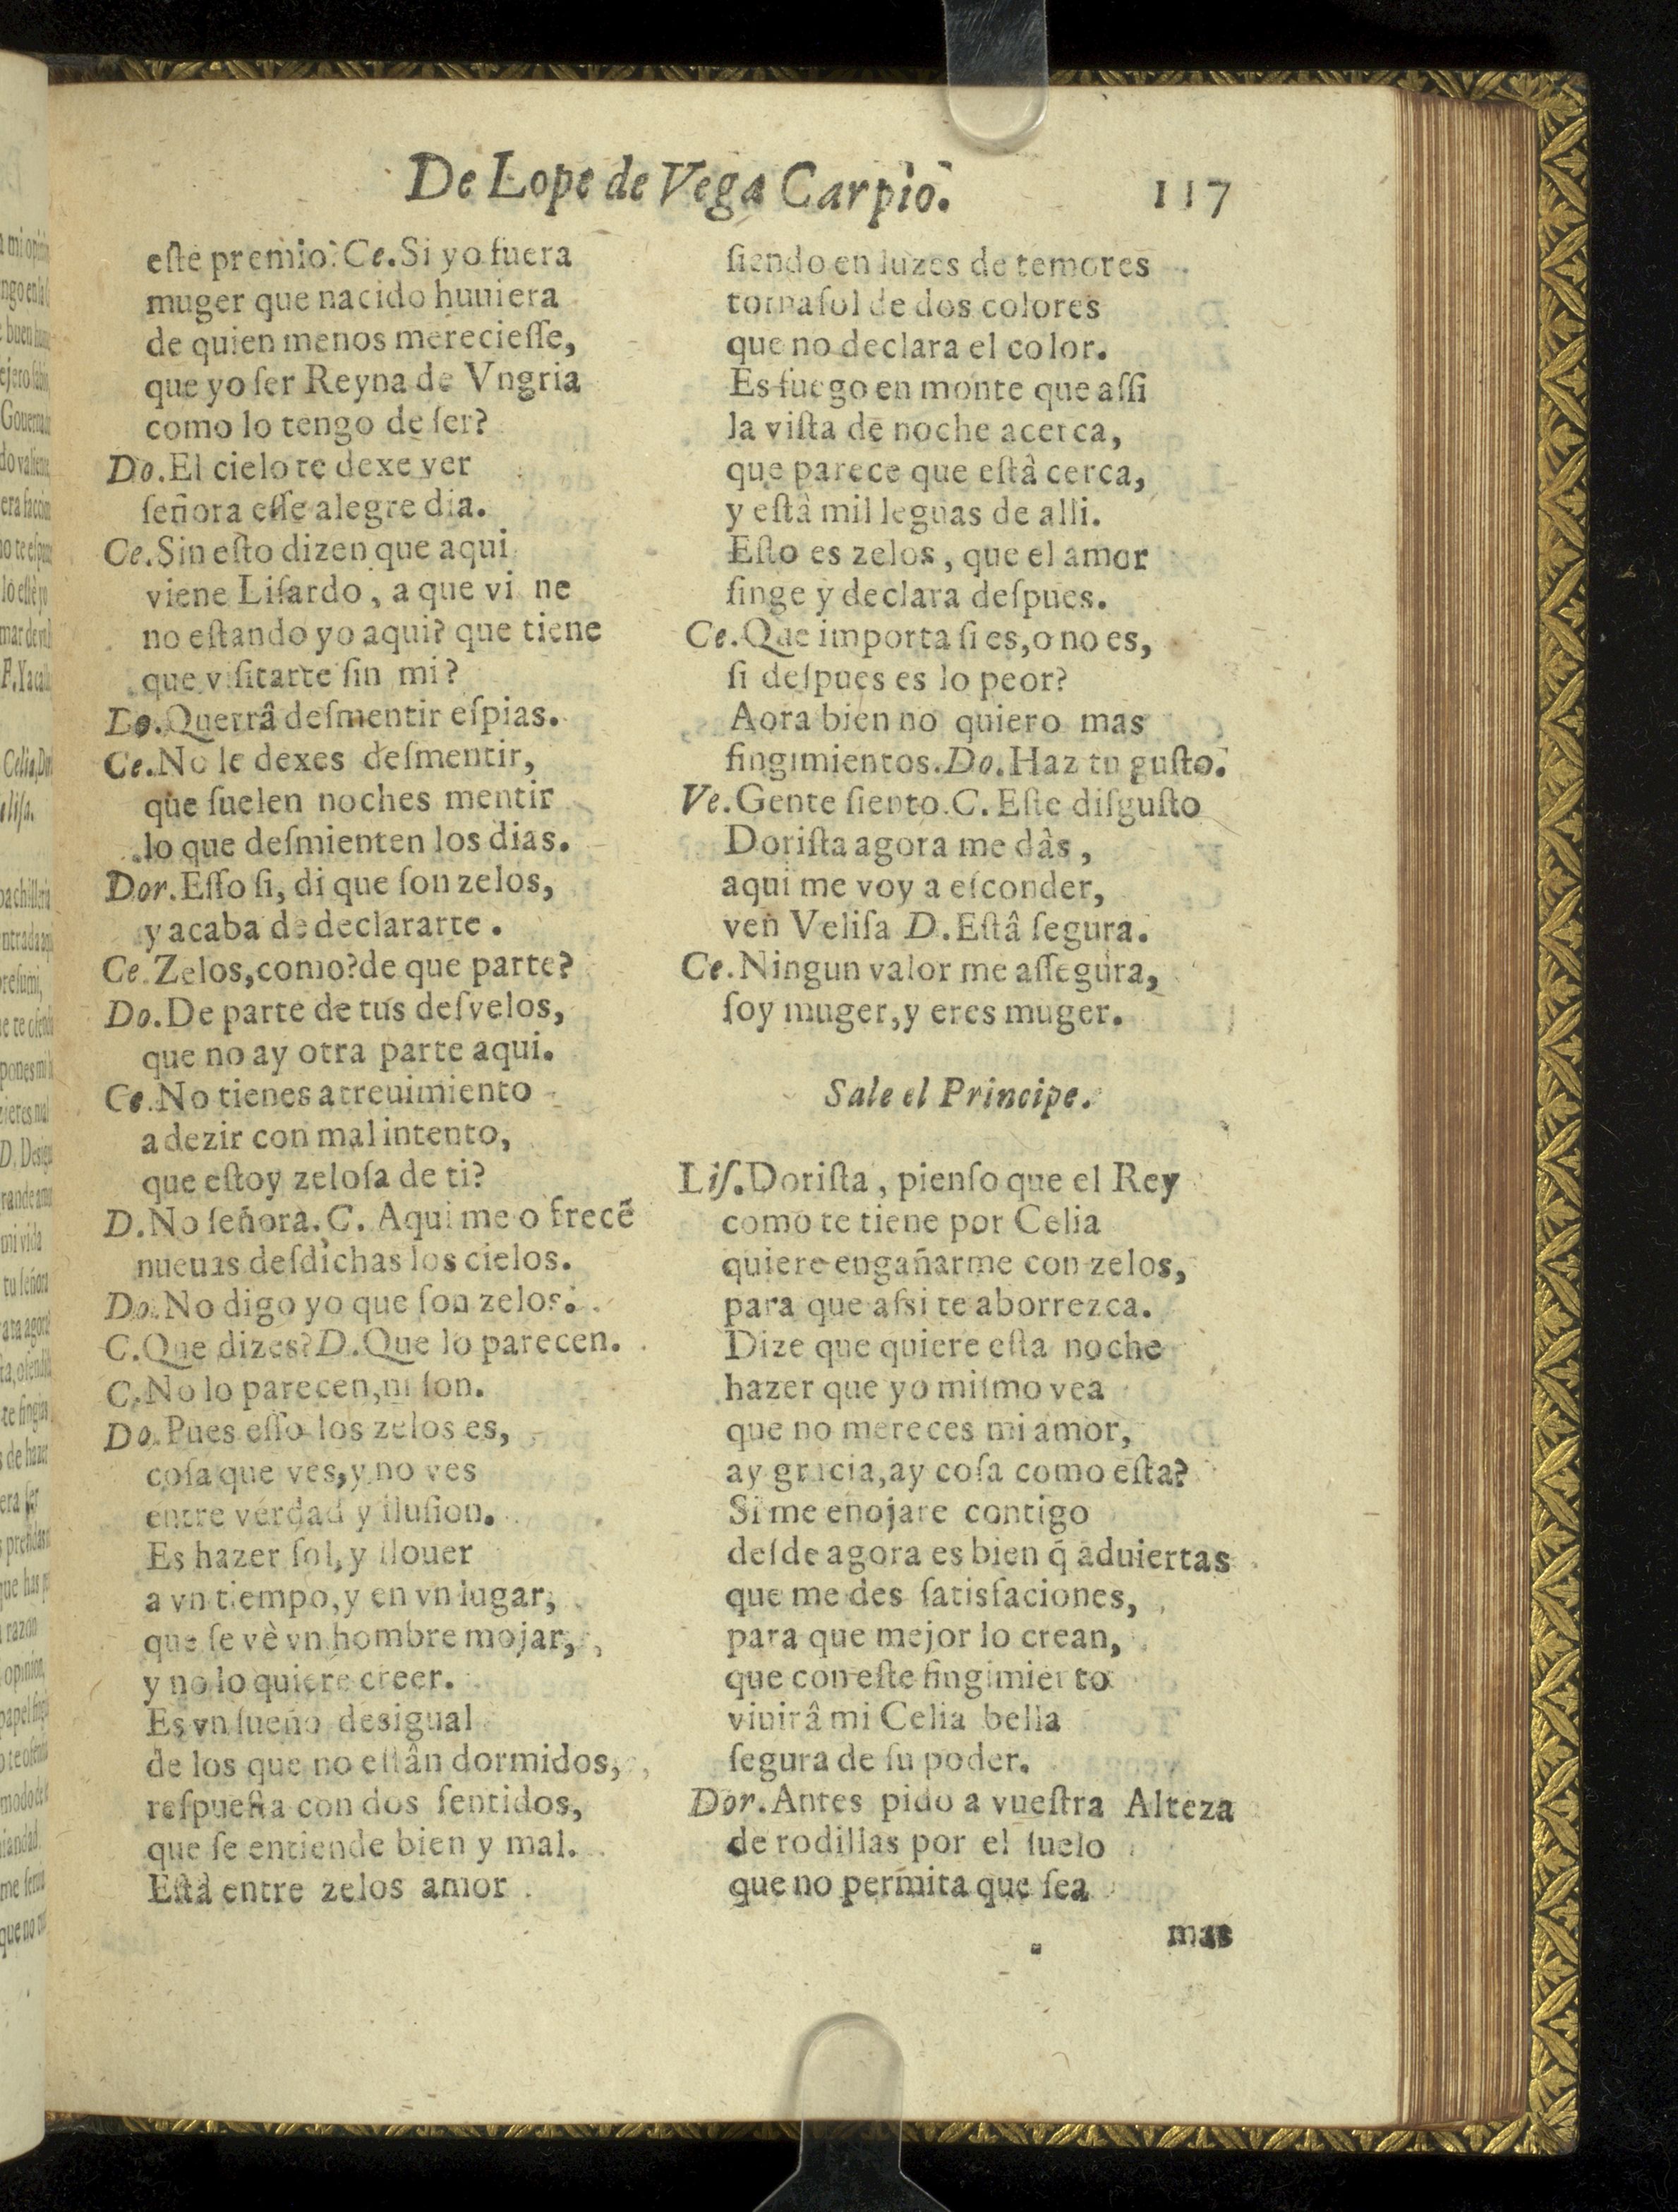 De Lope de Vega Carpio.
117
eſte premio. Ce. Si yo fuera
muger que nacido huuiera
de quien menos mereciesſe,
que yo ſer Reyna de Vngria
como lo tengo de ſer?
Do. El cielo te dexe ver
ſeñora eſſe alegre dia.
Ce. Sin eſto dizen que aqui
viene Liſardo, a que vi ne
no eſtando yo aqui? que tiene
que viſitarte ſin mi?
Do. Querrâ deſmentir eſpias.
Ce. No le dexes deſmentir,
que ſuelen noches mentir
lo que deſmienten los dias.
Dor. Eſſo ſi, di que ſon zelos,
y acaba de declararte.
Ce. Zelos, como? de que parte?
Do. De parte de tus deſvelos,
que no ay otra parte aqui.
Ce. No tienes atreuimiento
a dezir con mal intento,
que eſtoy zeloſa de ti?
D. No ſeñora. C. Aqui me o frecē
nueuas deſdichas los cielos.
Do. No digo yo que ſon zelos.
C. Que dizes? D. Que lo parecen.
C. No lo parecen, ni ſon.
Do. Pues eſſo los zelos es,
coſa que ves, y no ves
entre verdad y iluſion.
Es hazer ſol, y llouer
a vn tiempo, y en vn lugar,
que ſe vè vn hombre mojar,
y no lo quiere creer.
Es vn ſueño desigual
de los que no eſtân dormidos,
reſpueſta con dos ſentidos,
que ſe entiende bien y mal.
Eſtâ entre zelos amor
ſiendo en luzes de temores
tornaſol de dos colores
que no declara el color.
Es fuego en monte que aſſi
la viſta de noche acerca,
que parece que eſtâ cerca,
y eſtà mil leguas de alli.
Eſto es zelos, que el amor
finge y declara deſpues.
Ce. Que importa ſi es, o no es,
ſi deſpues es lo peor?
Aora bien no quiero mas
fingimientos. Do. Haz tu guſto.
Ve. Gente ſiento. C. Eſte diſguſto
Doriſta agora me dâs,
aqui me voy a eſconder,
ven Veliſa D. Eſtâ ſegura.
Ce. Ningun valor me aſſegura,
ſoy muger, y eres muger.
Sale el Principe.
Liſ. Doriſta, pienſo que el Rey
como te tiene por Celia
quiere engañarme con zelos,
para que aſsi te aborrezca.
Dize que quiere eſta noche
hazer que yo miſmo vea
que no mereces mi amor,
ay gracia, ay coſa como eſta?
Si me enojare contigo
deſde agora es bien q̃ aduiertas
que me des ſatisfaciones,
para que mejor lo crean,
que con eſte fingimiento
viuirâ mi Celia bella
ſegura de ſu poder.
Dor. Antes pido a vueſtra Alteza
de rodillas por el ſuelo
que no permita que ſea
mas